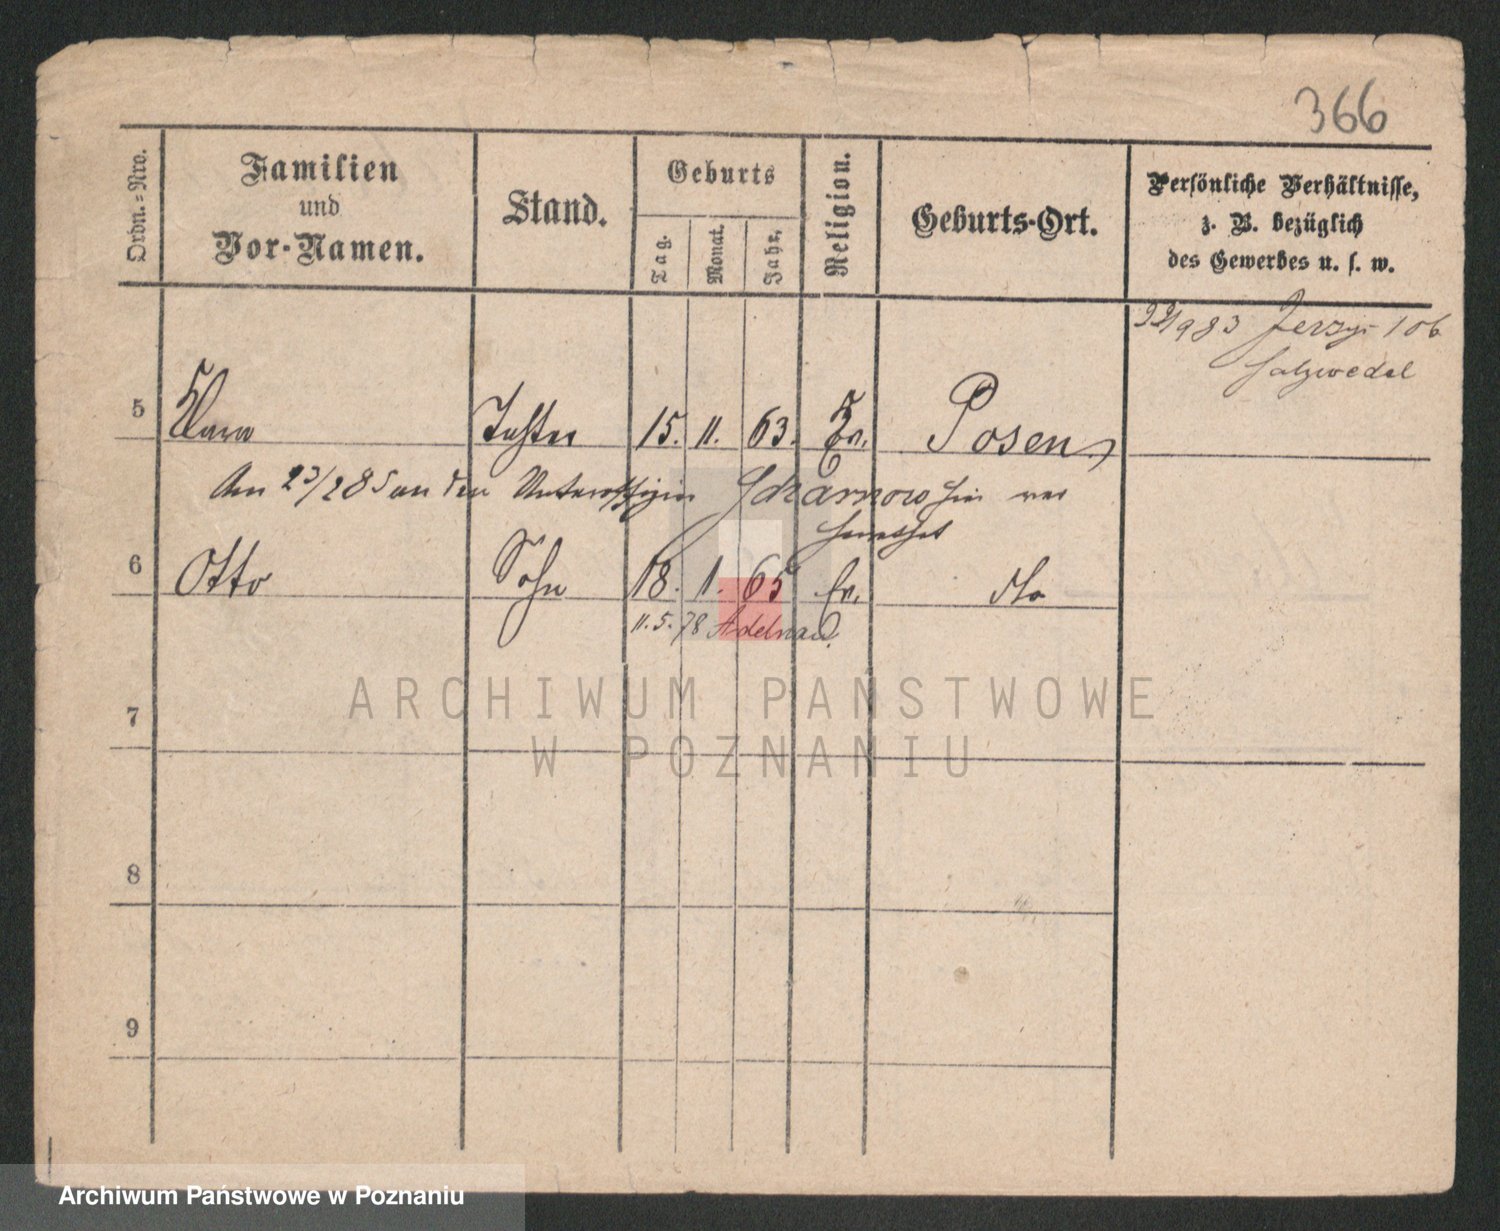 366
Ordn.-Nro.
Familien
und
Vor-Namen.
Stand.
Geburts
Tag.
Monat.
Jahr.
Religion.
Geburts-Ort.
Persönliche Verhältnisse,
z. B. bezüglich
des Gewerbes u. s. w.
983 Jerzyc 106
Salzwedel
5 Clara Tochter 15. 11. 63. Ev. Posen
An den Unteroffizier hier ver
heirathet
6 Otto Sohn 18. 1. 65 Ev. dto
11.5.78 Adelnau.
7
8
9
ARCHIWUM PAŃSTWOWE
W POZNANIU
Archiwum Państwowe w Poznaniu